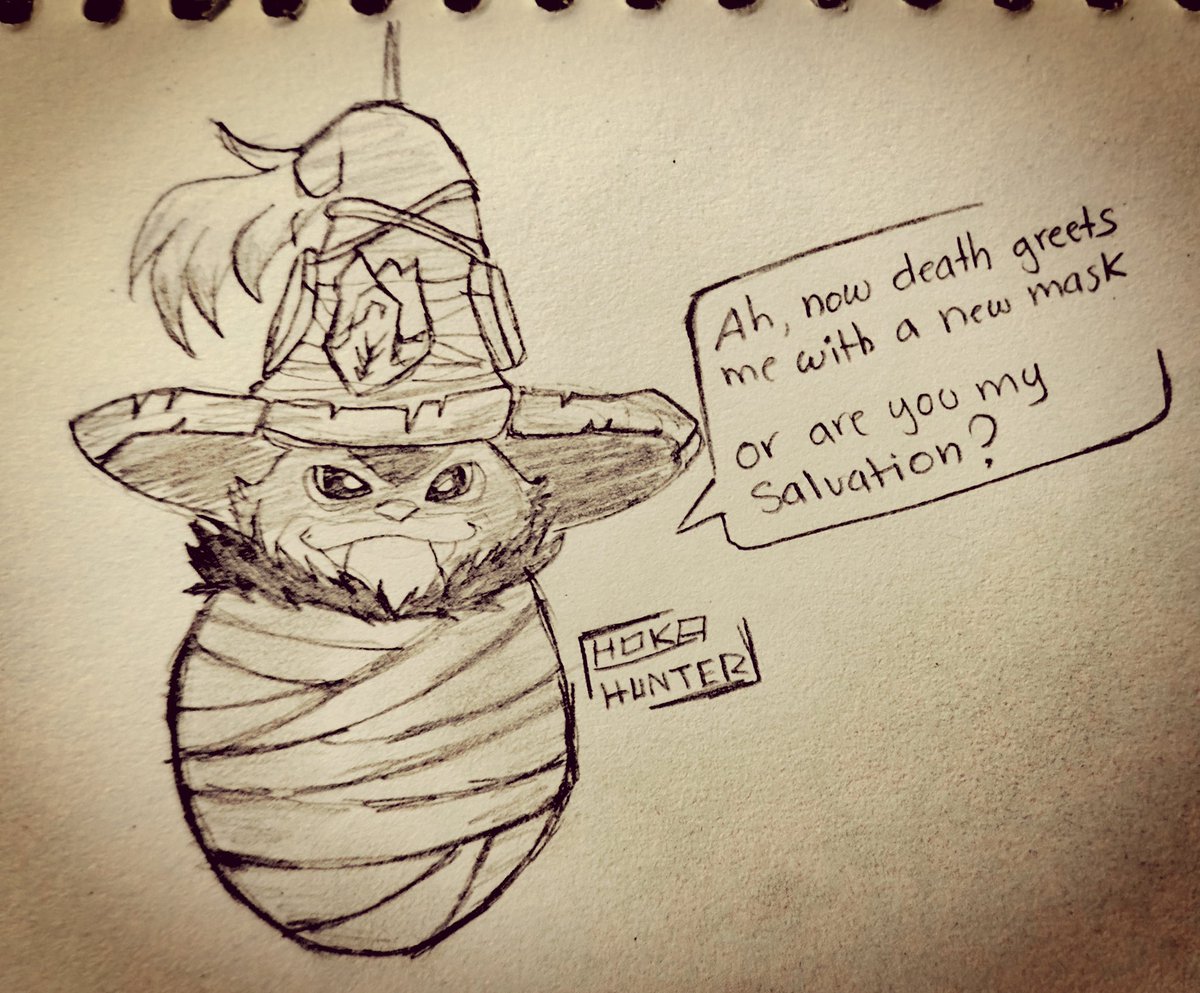 Ah, now death greets
me with a new mask
or are you my
Salvation?
HOKA
HUNTER